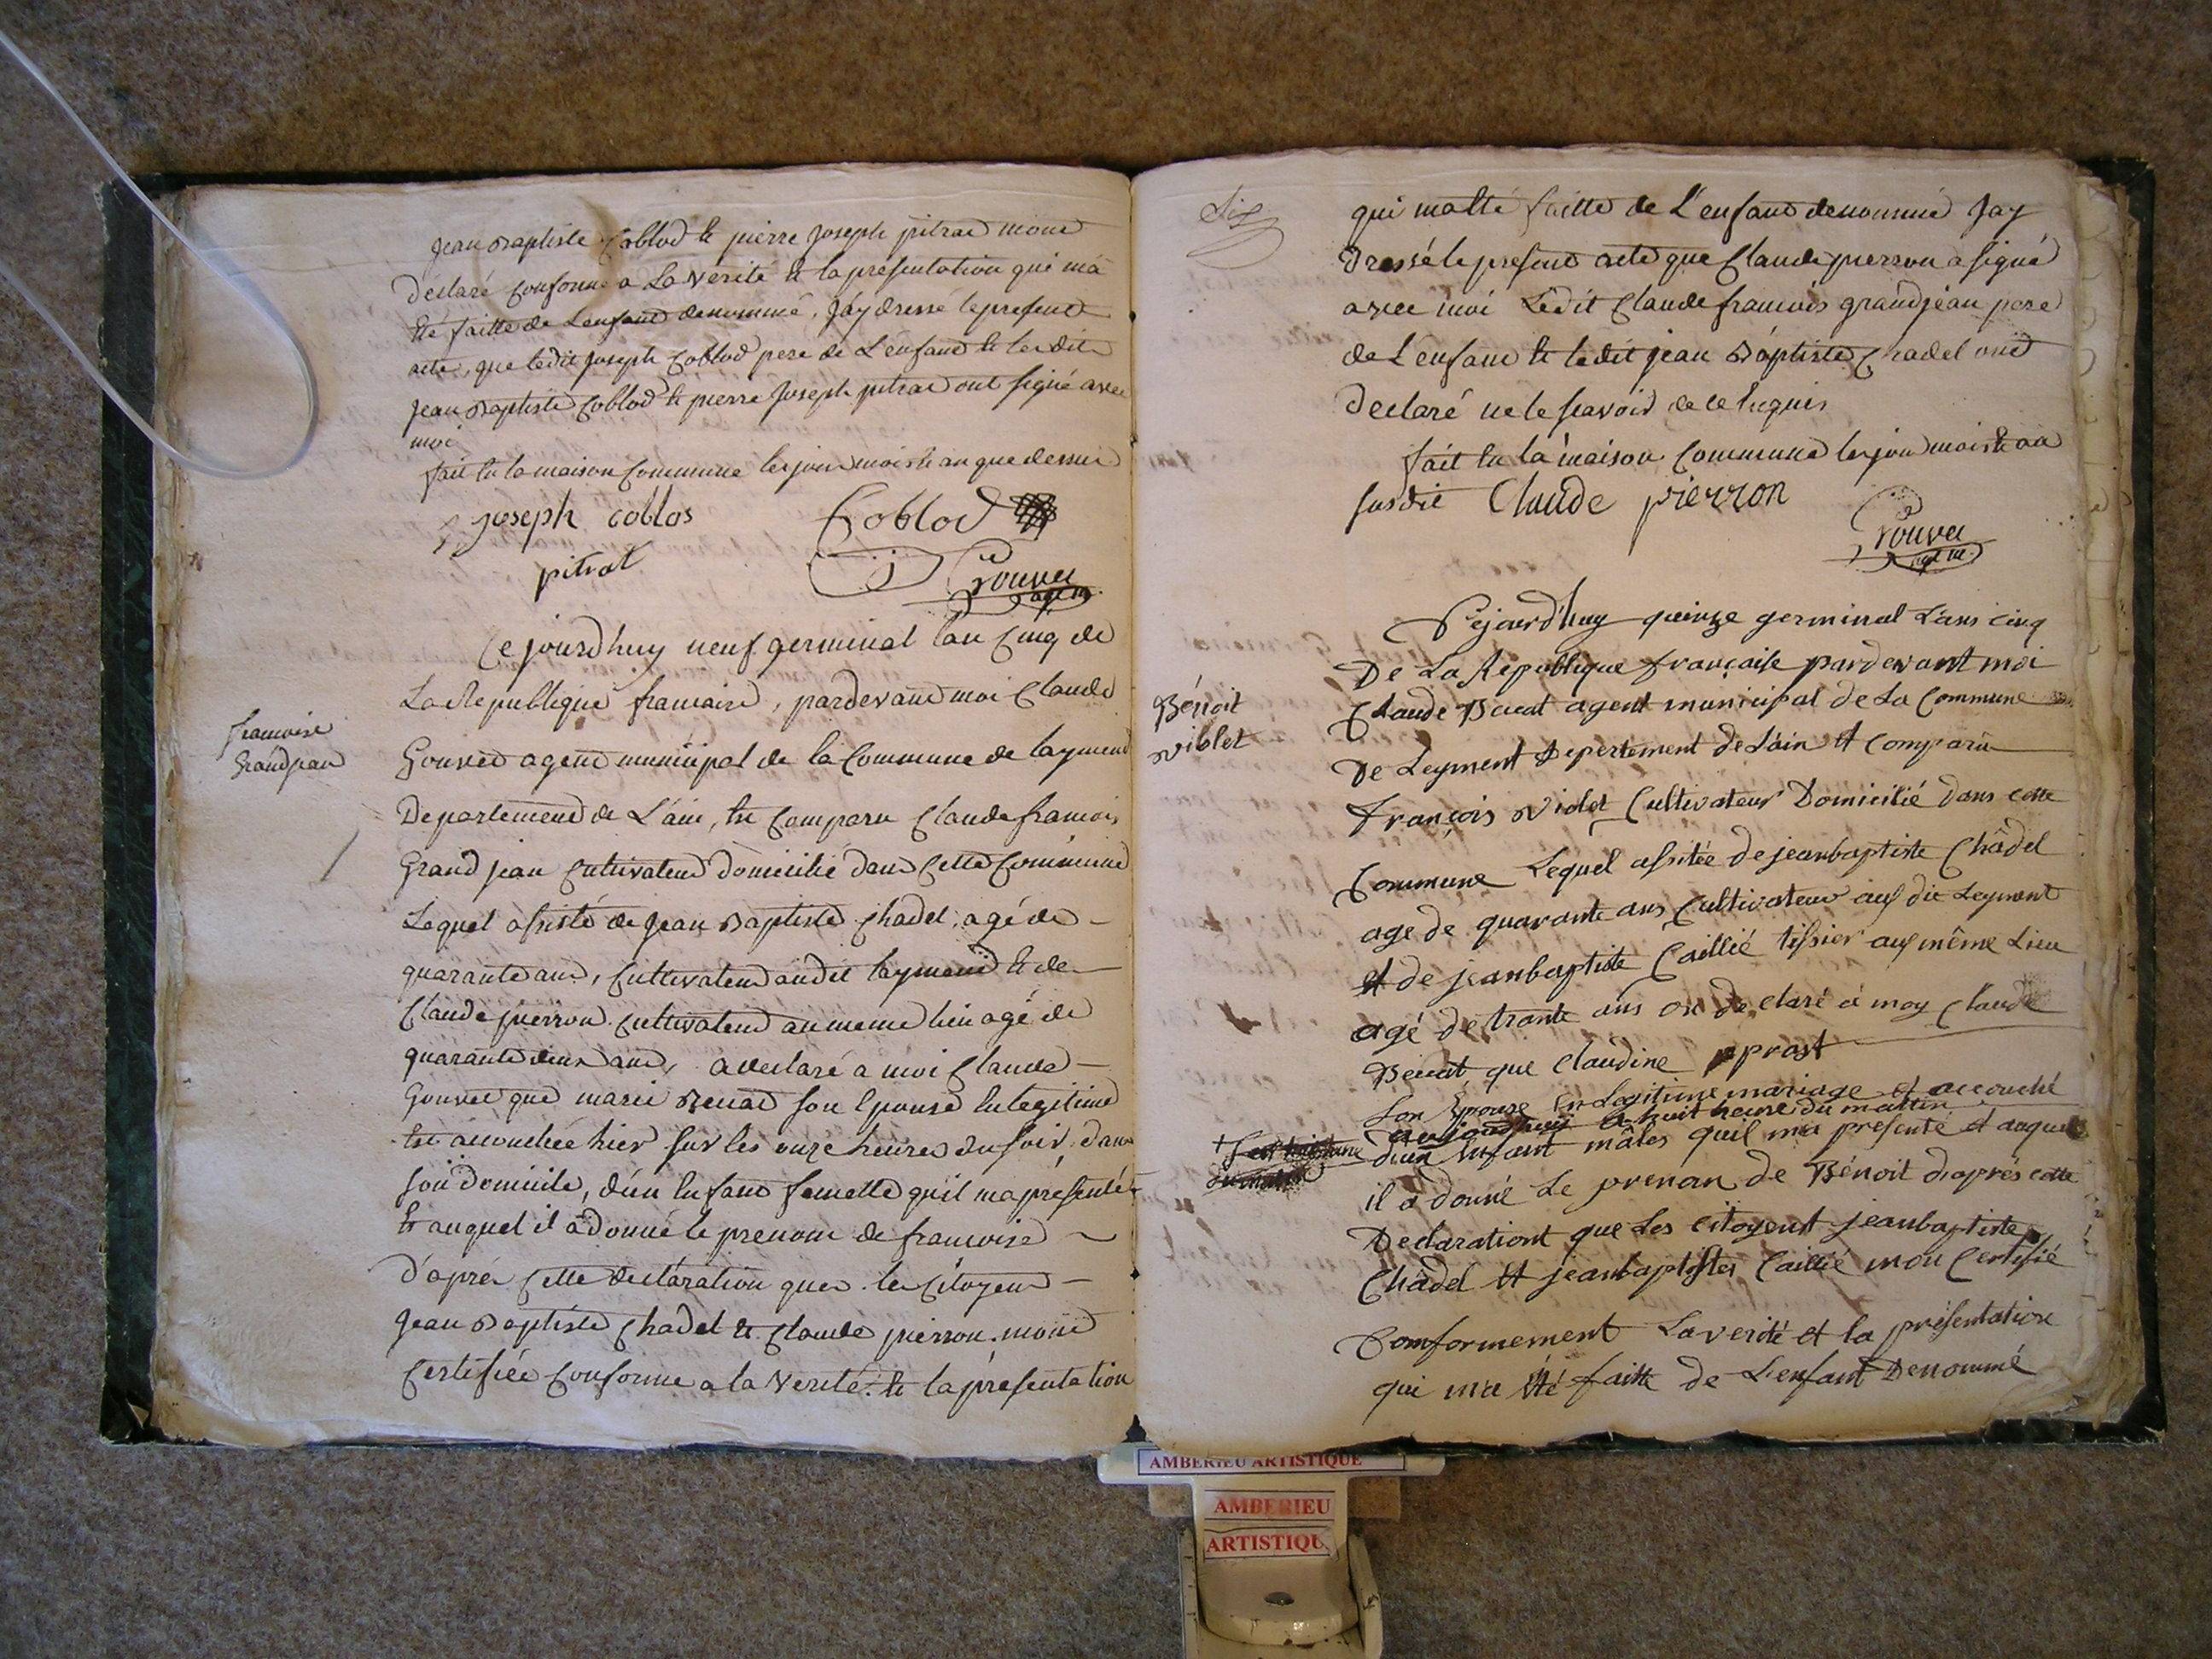 Jean Baptiste Coblod et pierre Joseph pitrat mont
déclaré conforme a La vérité et la presentation qui ma
été faitte de Lenfant denommé, Jay dressé le present
acte, que ledit Joseph Coblod pere de L'enfant et lesdits
Jean Baptiste Coblod et pierre Joseph pitrat ont signé avec
moi
fait en la maison Commune les jour mois et an que dessus
joseph coblos
Coblod
pitrat
Gouvet
agt m.
Ce jourdhuy neuf germinal l'an Cinq de
La Republique francaise, pardevant moi Claude
francoise
Grandjean
Gouvet agent municipal de la Commune de Laymend
Departement de L'ain, est Comparu Claude francois
Grand jean Cultivateur domicilié dans Cette Commune
Lequel assisté de Jean Baptiste Chadel, agé de
quarante ans, Cultivateur audit Laymend et de
Claude pierron Cultivateur au meme lieu agé de
quarante deux ans, a declaré a moi Claude
Gouvet que marie Benat son Epouse en legitime
est accouchée hier sur les onze heures du soir, dans
son domicile, d'un Enfant femelle qu'il ma présenté
et auquel il a donné le prenom de francoise
d'après Cette déclaration que les Citoyens
Jean Baptiste Chadel et Claude pierron mont
Certifiée Conforme a la Verité et la présentation
Six
qui ma été faitte de L'enfant denommé Jay
Dressé le present acte que Claude pierron a signé
avec moi Ledit Claude francois grandjean pere
de L'enfant et ledit jean Baptiste Chadel ont
Declaré ne le scavoir de ce Enquis
fait en la maison Commune les jour mois et an
susdit Claude pierron
Gouvet
agt m.
Cejourd'huy quinze germinal L'ans cinq
De La Republique française pardevant moi
Bénoit
violet
Claude Benat agent municipal de La Commune
De Leyment Depertement de L'ain Et Comparu
François violet Cultivateur Domicilié dans cette
Commune Lequel assitée de jeanbaptiste Châdel
age de quarante ans Cultivateur aus dit Leyment
et de jeanbaptiste Caillié tissier aus même Lieu
agé de trante ans on declaré à moy Claude
Benat que Claudine prost
Son Epouse En Legitime mariage et accouché
aujourdhuis a huit heure du mattin
dun Enfant mâles quil ma présenté et auquel
il a donné Le prenon de Bénoit d'après cette
Declarationt que Les citoyent jeanbaptiste
Châdel Et jeanbaptistes Caillié mon Certifié
Conformement La verité et la présentation
qui ma Eté faitte de L'enfant Denommé
AMBERIEU ARTISTIQUE
AMBERIEU
ARTISTIQU